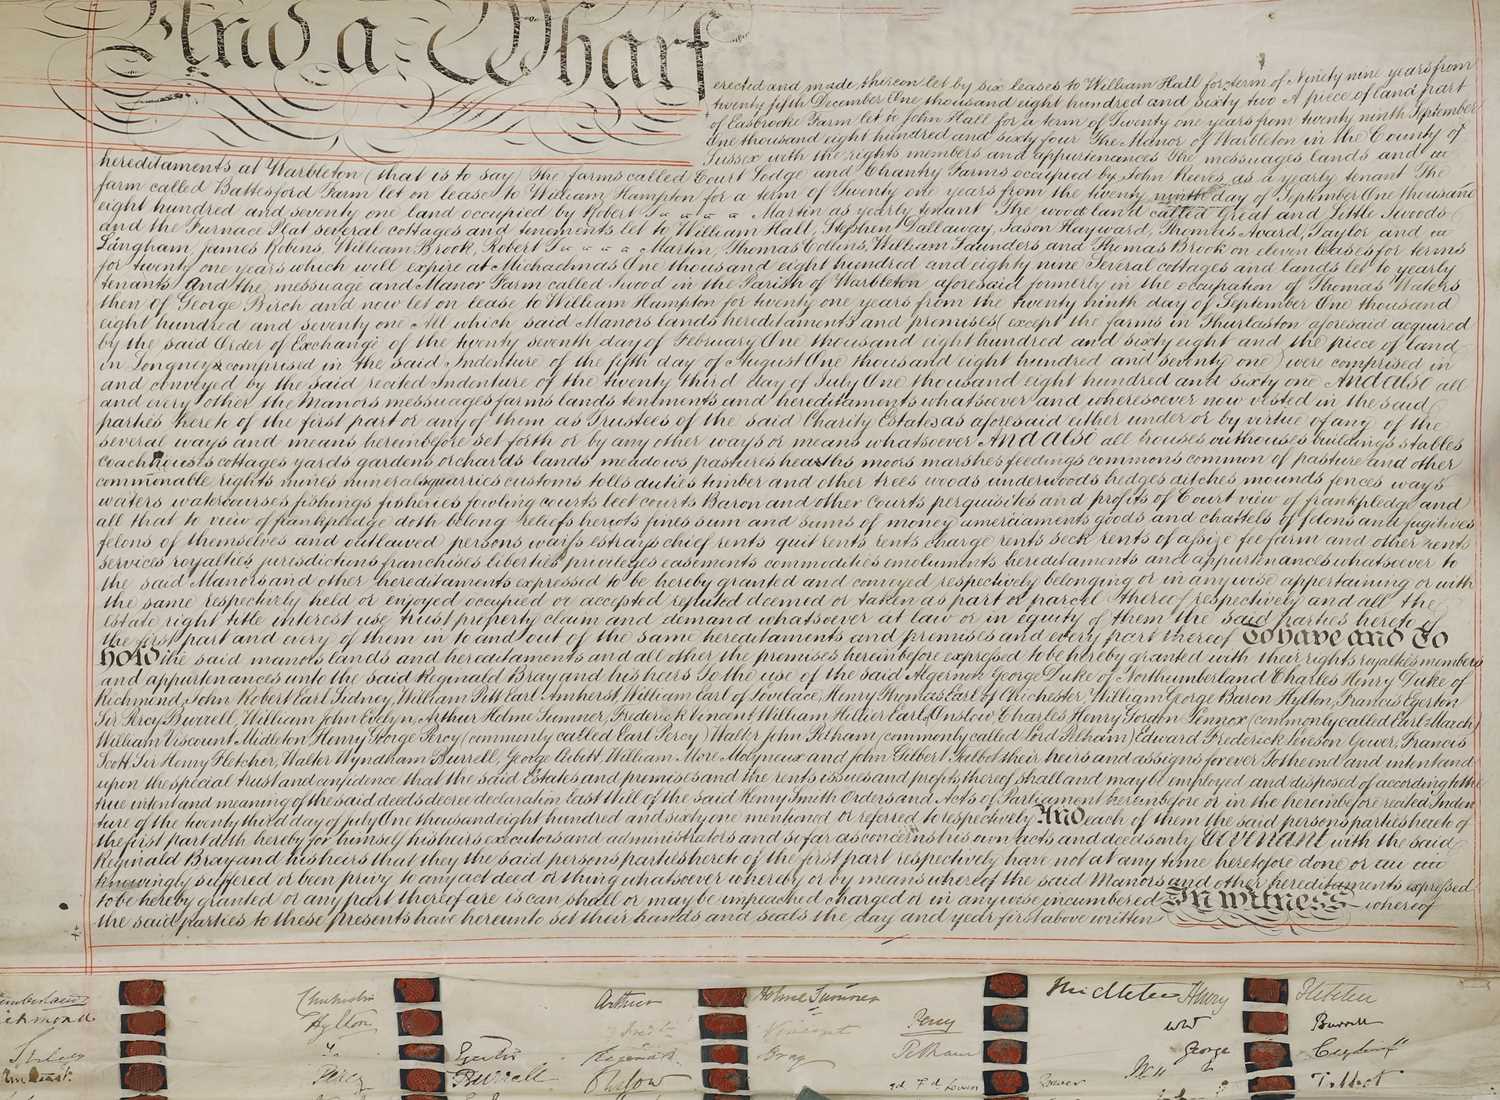 And a Wharf
erected and made thereon let by six leases to William Hall for term of Ninety nine years from
twenty fifth December One thousand eight hundred and sixty two A piece of land part
of Easbrooke Farm let to John Hall for a term of Twenty one years from twenty ninth September
One thousand eight hundred and sixty four The Manor of Warbleton in the County of
Sussex with the rights members and appurtenances The messuages lands and
hereditaments at Warbleton (that is to say) The farms called Court Lodge and Chantry Farms occupied by John Reeves as a yearly tenant The
farm called Battesford Farm let on lease to William Hampton for a term of Twenty one years from the twenty ninth day of September One thousand
eight hundred and seventy one land occupied by Robert Martin as yearly tenant The wood land called Great and Little Swoods
and the Furnace Plat several cottages and tenements let to William Hall, Stephen Dallaway, Jason Hayward, Thomas Avard, Taylor and
Lingham, James Robins, William Brook, Robert Martin, Thomas Collins, William Saunders and Thomas Brook on eleven leases for terms
for twenty one years which will expire at Michaelmas One thousand eight hundred and eighty nine Several cottages and lands let to yearly
tenants And the messuage and Manor Farm called Swood in the Parish of Warbleton aforesaid formerly in the occupation of Thomas Waters
then of George Birch and now let on lease to William Hampton for twenty one years from the twenty ninth day of September One thousand
eight hundred and seventy one All which said Manors lands hereditaments and premises (except the farms in Thurlaston aforesaid acquired
by the said Order of Exchange of the twenty seventh day of February One thousand eight hundred and sixty eight and the piece of land
in Longney comprised in the said Indenture of the fifth day of August One thousand eight hundred and seventy one) were comprised in
and conveyed by the said recited Indenture of the twenty third day of July One thousand eight hundred and sixty one And also all
and every other the Manors messuages farms lands tenements and hereditaments whatsoever and wheresoever now vested in the said
parties hereto of the first part or any of them as Trustees of the said Charity Estates as aforesaid either under or by virtue of any of the
several ways and means hereinbefore set forth or by any other ways or means whatsoever And also all houses outhouses buildings stables
coachhouses cottages yards gardens orchards lands meadows pastures hearths moors marshes feedings commons common of pasture and other
commonable rights mines minerals quarries customs tolls duties timber and other trees woods underwoods hedges ditches mounds fences ways
waters watercourses fishings fisheries fowling courts leet courts Baron and other Courts perquisites and profits of Court view of frankpledge and
all that to view of frankpledge doth belong reliefs heriots fines sum and sums of money amerciaments goods and chattels of felons and fugitives
felons of themselves and outlawed persons waifs estrays chief rents quit rents rents charge rents seck rents of assize fee farm and other rents
services royalties jurisdictions franchises liberties privileges easements commodities emoluments hereditaments and appurtenances whatsoever to
the said Manors and other hereditaments expressed to be hereby granted and conveyed respectively belonging or in anywise appertaining or with
the same respectively held or enjoyed occupied or accepted reputed deemed or taken as part or parcel thereof respectively and all the
estate right title interest use trust property claim and demand whatsoever at law or in equity of them the said parties hereto of
the first part and every of them in to and out of the same hereditaments and premises and every part thereof To have and To
hold the said manors lands and hereditaments and all other the premises hereinbefore expressed to be hereby granted with their rights royalties members
and appurtenances unto the said Reginald Bray and his heirs To the use of the said Algernon George Duke of Northumberland Charles Henry Duke of
Richmond, John Robert Earl Sidney, William Pitt Earl Amherst William Earl of Lovelace, Henry Thomas Earl of Chichester, William George Baron Hylton, Francis Egerton
Sir Percy Burrell, William John Evelyn, Arthur Holme Sumner, Frederick Vincent, William Hillier Earl Onslow, Charles Henry Gordon Lennox (commonly called Earl March)
William Viscount Midleton Henry George Percy (commonly called Earl Percy) Walter John Pelham (commonly called Lord Pelham) Edward Frederick Leveson Gower, Francis
Scott Sir Henry Fletcher, Walter Wyndham Burrell, George Cubitt William More Molyneux and John Gilbert Talbot their heirs and assigns forever To the end and intent and
upon the special trust and confidence that the said Estates and premises and the rents issues and profits thereof shall and may be employed and disposed of according to the
true intent and meaning of the said deeds decree declaration Last Will of the said Henry Smith Orders and Acts of Parliament hereinbefore or in the hereinbefore recited Inden
ture of the twenty third day of July One thousand eight hundred and sixty one mentioned or referred to respectively And each of them the said persons parties hereto of
the first part doth hereby for himself his heirs executors and administrators and so far as concerns his own acts and deeds only Covenant with the said
Reginald Bray and his heirs that they the said persons parties hereto of the first part respectively have not at any time heretofore done or
knowingly suffered or been privy to any act deed or thing whatsoever whereby or by means whereof the said Manors and other hereditaments expressed
to be hereby granted or any part thereof are is can shall or may be impeached charged or in anywise incumbered In witness whereof
the said parties to these presents have hereunto set their hands and seals the day and year first above written
Chichester Arthur Holme Sumner Midleton Henry Fletcher
Richmond Hylton Fredk Vincent Percy WW Burrell
Sydney Egerton Reginald Bray Pelham George Cubitt
Amherst Percy Burrell Onslow Gower Talbot